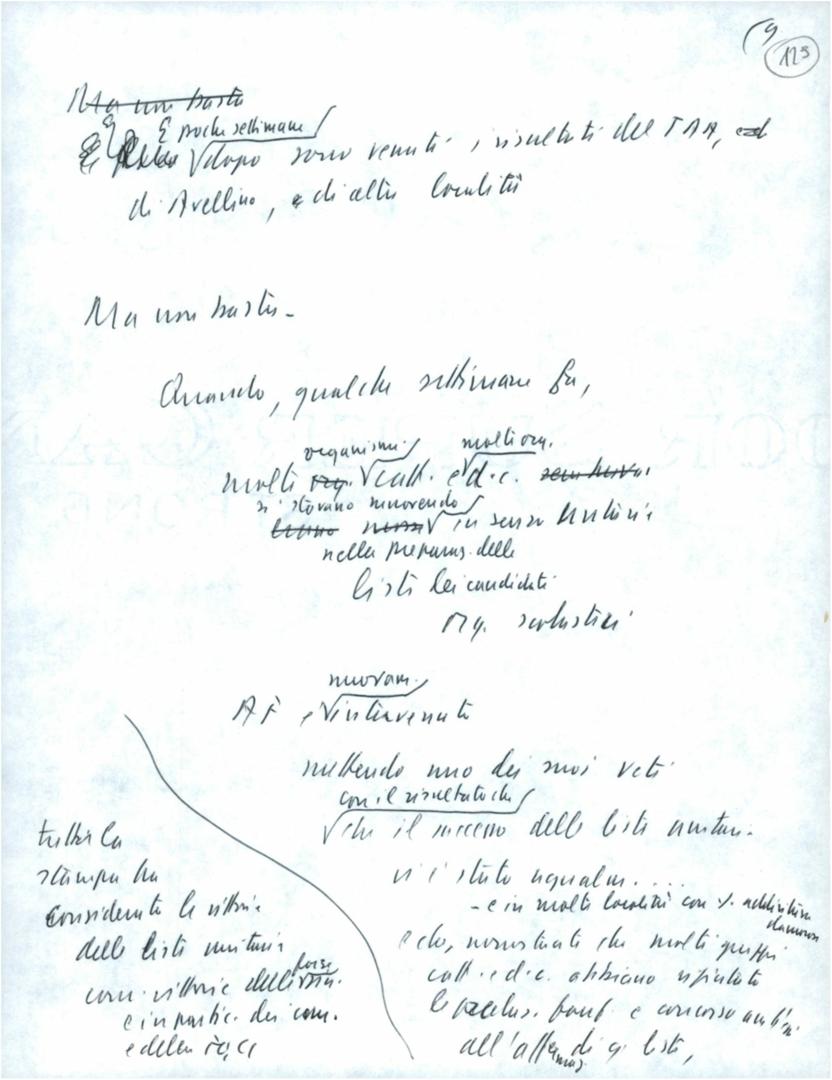 125
Ma non basta
E poche settimane
dopo sono venuti i risultati del TAA, ed
di Avellino, e di altre località
Ma non basta -
Quando, qualche settimana fa,
organismi molti org.
molti org. catt. e d.c.
si stavano muovendo
in senso unitario
nella preparaz. delle
liste dei candidati
org. scolastici
nuovam.
AF è intervenuto
mettendo uno dei suoi veti
con il risultato che
che il successo delle liste unitarie
vi è stato ugualm. . . . .
- e in molte località con
e ciò, nonostante che molti gruppi
catt. e d.c. abbiano rifiutato
e concorso anch'essi
all'affermaz. di q. liste,
tutta la
stampa ha
considerato le vittorie
delle liste unitarie
forze
come vittorie delle sin.
e in partic. dei com.
e della